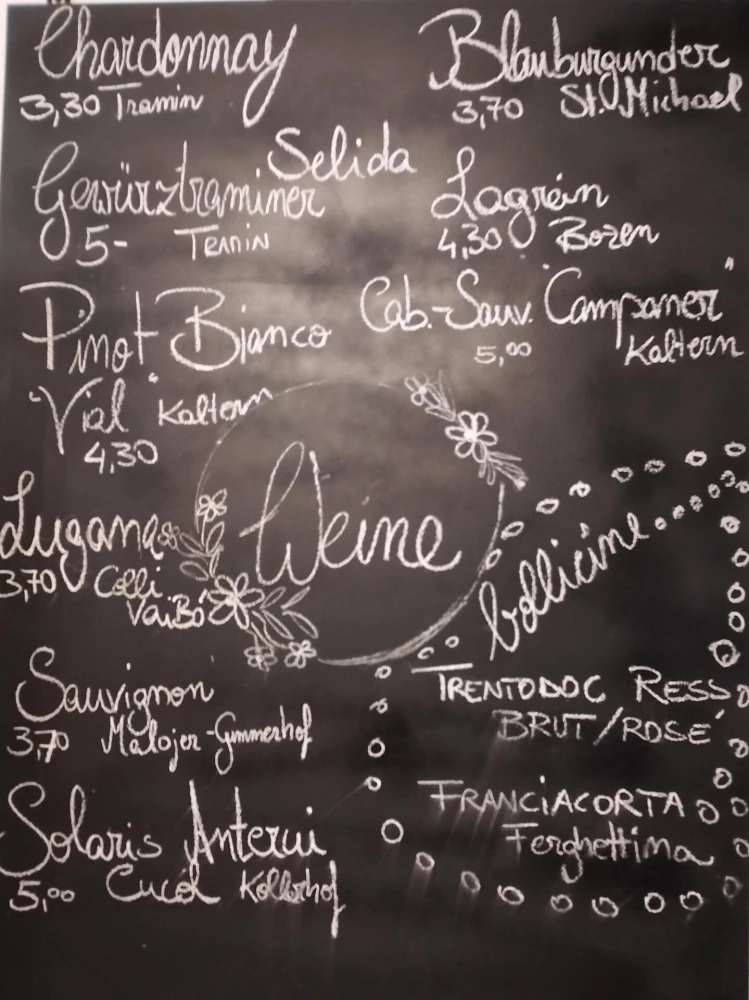 Chardonnay
3,30 Tramin
Selida
Gewürztraminer
5- Tramin
Pinot Bianco
"Vial" Kaltern
4,30
Lugana
3,70 Colli
VaiBó
Sauvignon
3,70 Malojer-Gummerhof
Solaris Anterui
5,00 Cucol Kollerhof
Weine
Blauburgunder
3,70 St. Michael
Lagrein
4,30 Bozen
Cab.-Sauv. "Campaner"
5,00 Kaltern
bollicine
TRENTODOC RESS
BRUT/ROSÉ
FRANCIACORTA
Ferghettina